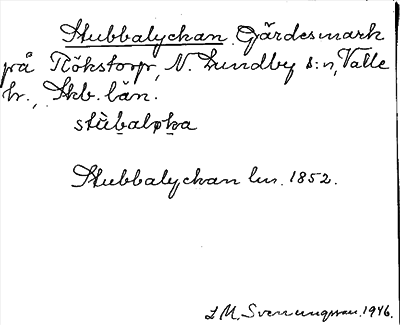 Stubbalyckan. Gärdesmark
på Rökstorp, N. Lundby s:n, Valle
hr., Skb. län.
stùbalyka
Stubbalyckan lm. 1852.
L M. Svenungsson. 1946.